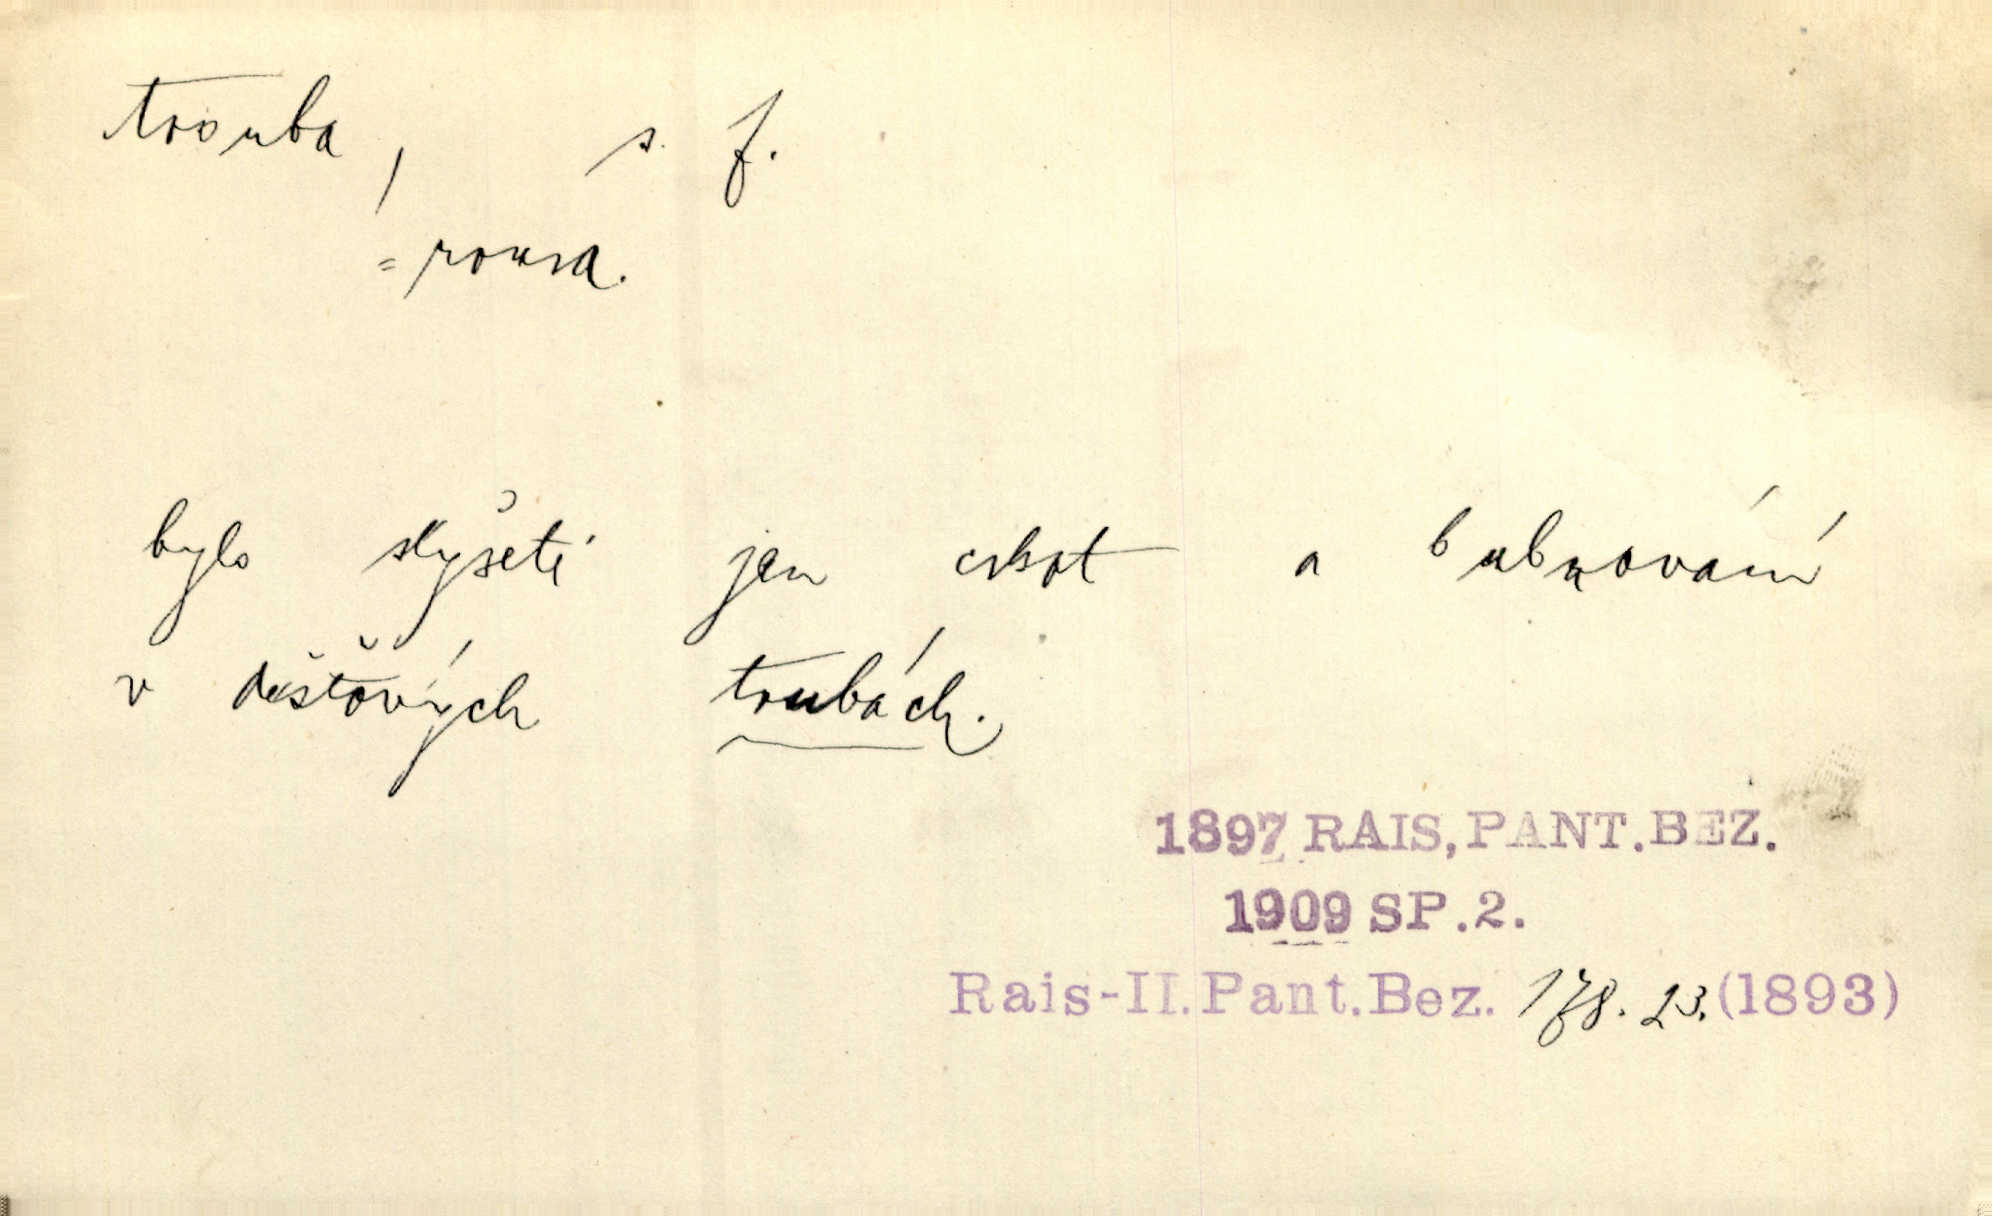 trouba, s. f.
= roura.
bylo slyšeti jen crkot a bubnování
v dešťových troubách.
1897 RAIS, PANT. BEZ.
1909 SP. 2.
Rais-II. Pant. Bez. 178. 23. (1893)